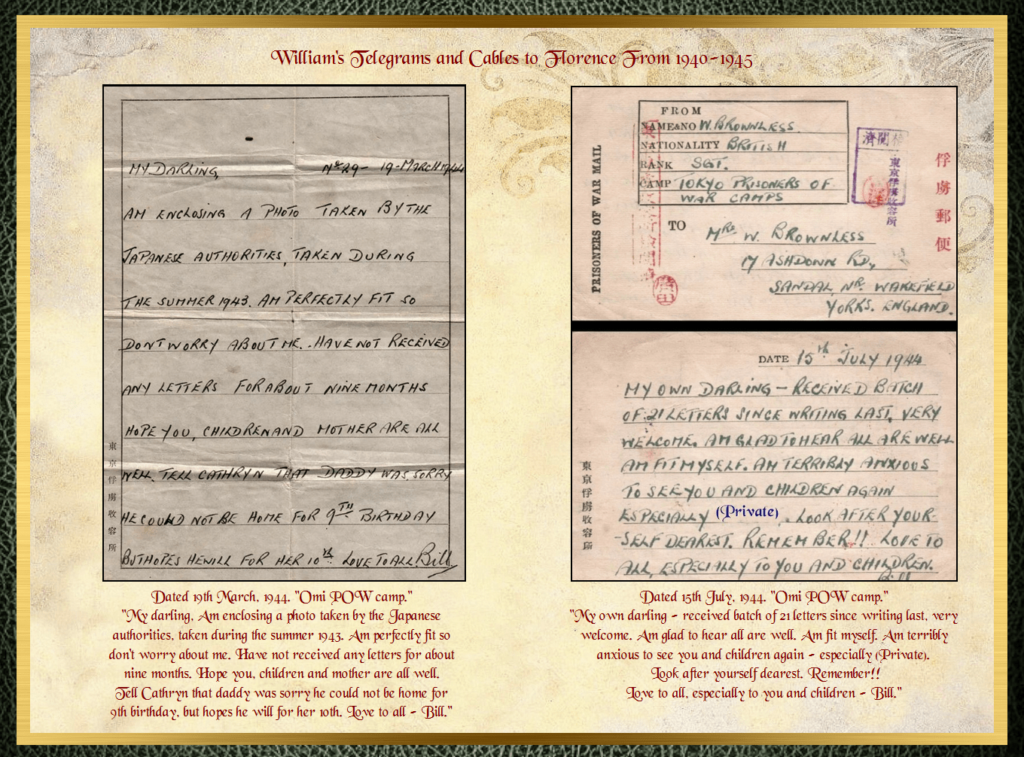 William's Telegrams and Cables to Florence From 1940-1945
MY DARLING, No 29 - 19-MARCH 1944
AM ENCLOSING A PHOTO TAKEN BY THE
JAPANESE AUTHORITIES, TAKEN DURING
THE SUMMER 1943. AM PERFECTLY FIT SO
DONT WORRY ABOUT ME. HAVE NOT RECEIVED
ANY LETTERS FOR ABOUT NINE MONTHS
HOPE YOU, CHILDREN AND MOTHER ARE ALL
WELL. TELL CATHRYN THAT DADDY WAS SORRY
HE COULD NOT BE HOME FOR 9TH BIRTHDAY
BUT HOPES HE WILL FOR HER 10th. LOVE TO ALL Bill
東京俘虜收容所
Dated 19th March, 1944. "Omi POW camp."
"My darling, Am enclosing a photo taken by the Japanese
authorities, taken during the summer 1943. Am perfectly fit so
don't worry about me. Have not received any letters for about
nine months. Hope you, children and mother are all well.
Tell Cathryn that daddy was sorry he could not be home for
9th birthday, but hopes he will for her 10th. Love to all - Bill."
PRISONERS OF WAR MAIL
FROM
NAME&NO W. BROWNLESS
NATIONALITY BRITISH
RANK SGT.
CAMP TOKYO PRISONERS OF
WAR CAMPS
俘虜郵便
東京俘虜收容所
TO MRS W. BROWNLESS
17 ASHDOWN RD,
SANDAL NR. WAKEFIELD
YORKS. ENGLAND.
DATE 15th JULY 1944
MY OWN DARLING - RECEIVED BATCH
OF 21 LETTERS SINCE WRITING LAST, VERY
WELCOME. AM GLAD TO HEAR ALL ARE WELL
AM FIT MYSELF. AM TERRIBLY ANXIOUS
TO SEE YOU AND CHILDREN AGAIN
ESPECIALLY (Private). LOOK AFTER YOUR-
-SELF DEAREST. REMEMBER!! LOVE TO
ALL, ESPECIALLY TO YOU AND CHILDREN.
Bill
東京俘虜收容所
Dated 15th July, 1944. "Omi POW camp."
"My own darling - received batch of 21 letters since writing last, very
welcome. Am glad to hear all are well. Am fit myself. Am terribly
anxious to see you and children again - especially (Private).
Look after yourself dearest. Remember!!
Love to all, especially to you and children - Bill."